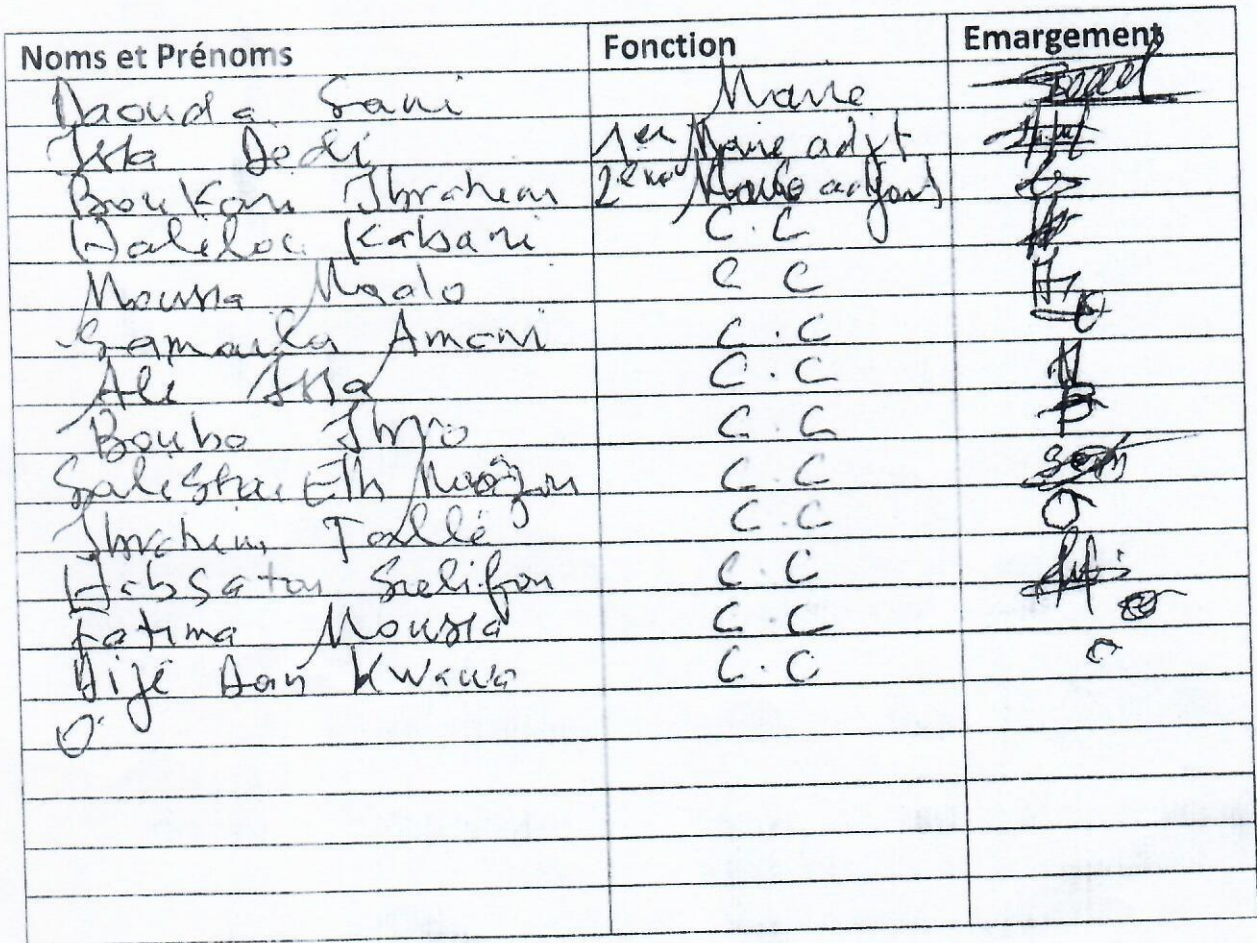 Noms et Prénoms Fonction Emargement
Daouda Sani Maire
Issa Dedi 1er Maire adjt
Boukari Ibrahim 2eme Maire adjoint
Halilou Kabani C.C
Moussa Maalo C C
Samaila Amani C.C
Ali Issa C.C
Boubo Ibro C.C
Salisha Elh C.C
Ibrahim Tallé C.C
Habsatou Salifou C.C
Fatima Moussa C.C
Dijé Dan Kwawa C.C